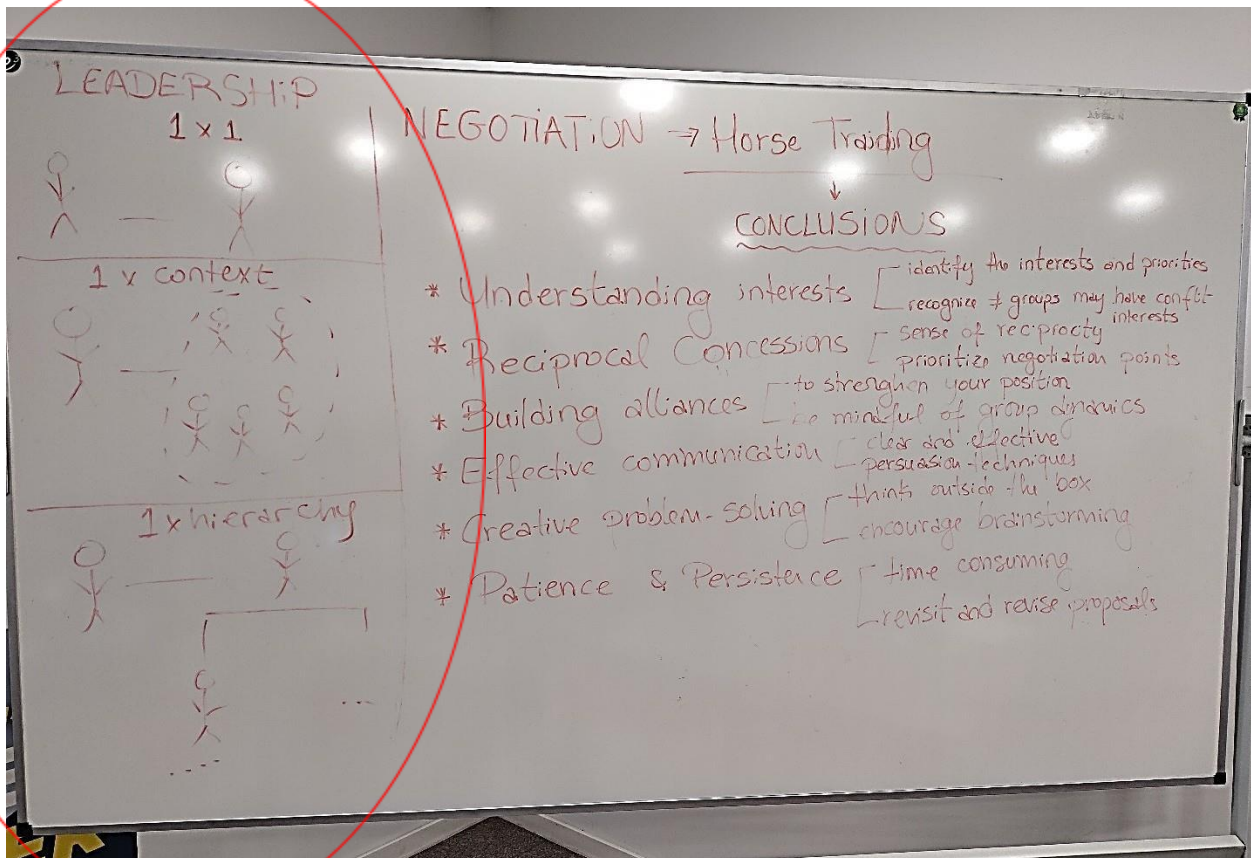 LEADERSHiP
1 x 1
1 x context
1 x hierarchy
...
....
NEGOTiATiON → Horse Traiding
↓
CONCLUSiONS
* Understanding interests
identify the interests and priorities
recognize ≠ groups may have conflit-
interests
* Reciprocal Concessions
sense of reciprocty
prioritize negotiation points
* Building alliances
to strenghen your position
be mindful of group dinamics
* Effective communication
clear and effective
persuasion techniques
* Creative problem-solving
think outside the box
encourage brainstorming
* Patience & Persistence
time consuming
revisit and revise proposals